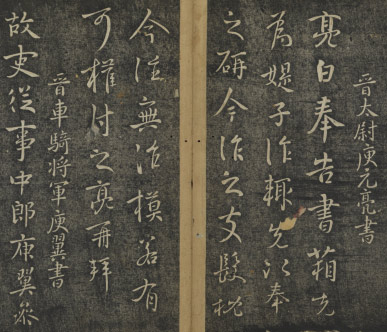 晉太尉庾元亮書
亮白奉告書箱先
為媞子作輒先以奉
之研今作之髲枕
今往無治模若有
可權付之亮再拜
晉車騎將軍庾翼書
故吏從事中郎庾翼參